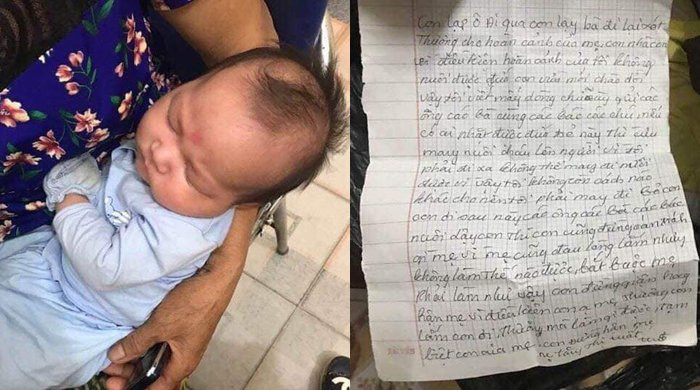 Con lạp ô Ai qua con lạy bà đi lại xót
Thương cho hoàn cảnh của mẹ con nhà con
vì điều kiện hoàn cảnh của tôi không
nuôi được đứa con vừa mới chào đời
vậy tôi viết mấy dòng chữ này gửi các
ông các bà cùng các bác các chú nếu
có ai phát được đứa trẻ này thì cưu
mang nuôi cháu lên người vì tôi
phải đi xa không thể mang đi nuôi
được vì vậy tôi không còn cách nào
khác cho nên tôi phải mang đi Bỏ con
con đi sau này các ông các Bà các Bác
nuôi dậy con thì con cũng đừng oan trách
gì mẹ vì mẹ cũng đau lòng lắm nhưng
không làm thế nào được, bắt Buộc mẹ
Phải làm như vậy con đừng oán
hận mẹ vì điều kiện con ạ mẹ thương con
lắm con ơi Thương mà làm gì được tạm
biệt con của mẹ con Đừng hận mẹ